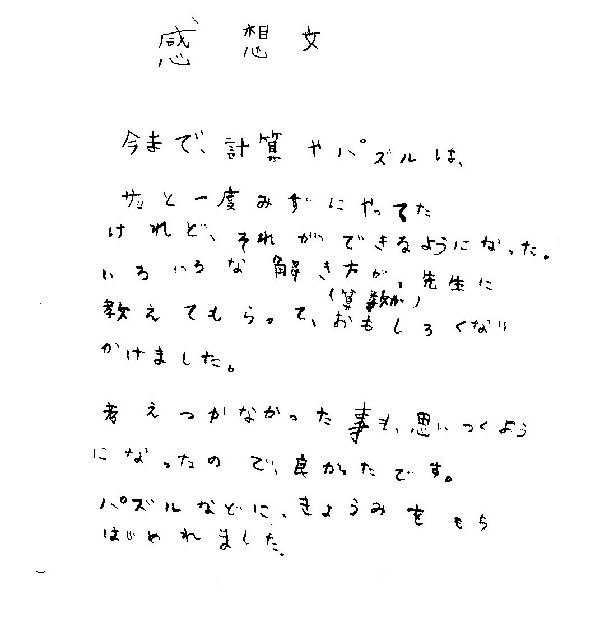 感想文
今まで、計算やパズルは、
サッと一度みずにやってた
けれど、それができるようになった。
いろいろな解き方が、先生に
教えてもらって、(算数が)おもしろくなり
かけました。
考えつかなかった事も、思いつくよう
になったので、良かったです。
パズルなどに、きょうみをもち
はじめれました。